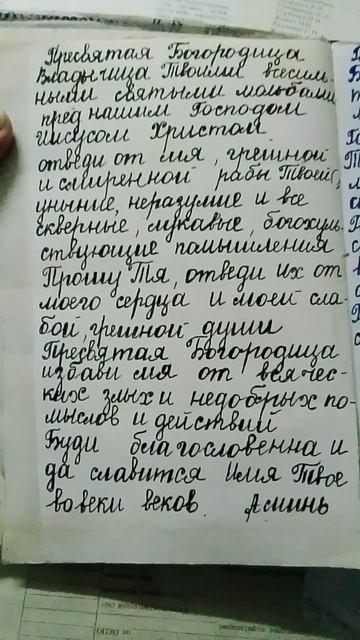 Пресвятая Богородица
Владычица Твоими всесиль-
ными святыми мольбами
пред нашим Господом
Иисусом Христом
отведи от мя, грешной
и смиренной рабы Твоей,
уныние, неразумие и все
скверные, лукавые, богохуль-
ствующие помышления
Прошу Тя, отведи их от
моего сердца и моей сла-
бой, грешной души
Пресвятая Богородица
избави мя от всячес-
ких злых и недобрых по-
мыслов и действий
Буди благословенна и
да славится Имя Твое
во веки веков. Аминь